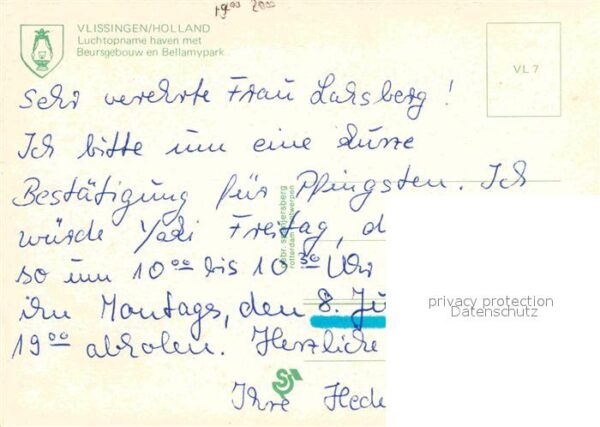 19⁰⁰ 20⁰⁰
VLISSINGEN/HOLLAND
Luchtopname haven met
Beursgebouw en Bellamypark
VL 7
Sehr verehrte Frau Lahsberg!
Ich bitte um eine kurze
Bestätigung für Pfingsten. Ich
würde Freitag, d
so um 10⁰⁰ bis 10³⁰ Uhr
ihn Montags, den 8. Ju
19⁰⁰ abholen. Herzliche
Ihre Hede
rotterdam
privacy protection
Datenschutz